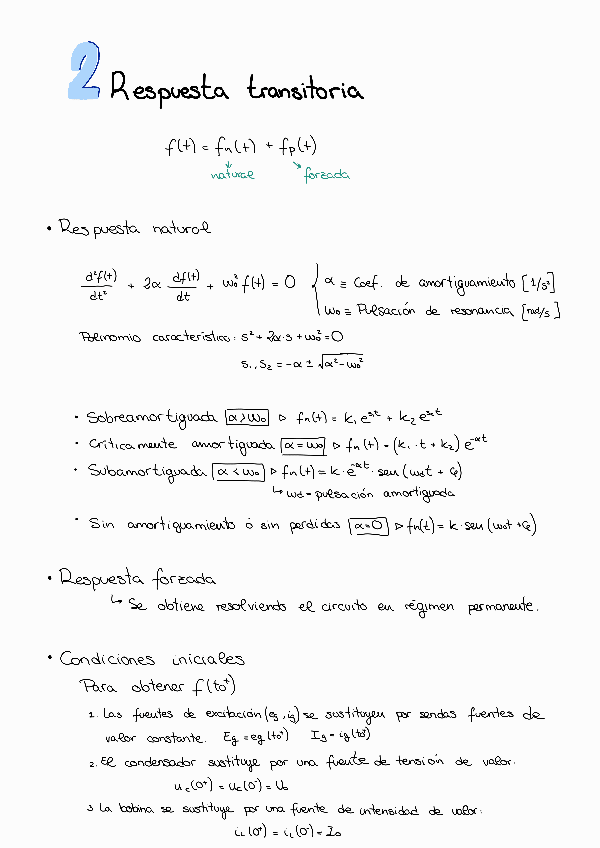 2 Respuesta transitoria
f(t) = fn(t) + fp(t)
natural forzada
• Respuesta natural
d²f(t)/dt² + 2α df(t)/dt + ω₀² f(t) = 0 { α ≡ Coef. de amortiguamiento [1/s²]
ω₀ ≡ Pulsación de resonancia [rad/s]
Polinomio característico: s² + 2α·s + ω₀² = 0
s₁, s₂ = -α ± √(α² - ω₀²)
• Sobreamortiguada α > ω₀ ▷ fn(t) = k₁ e^(s₁t) + k₂ e^(s₂t)
• Críticamente amortiguada α = ω₀ ▷ fn(t) = (k₁ · t + k₂) e^(-αt)
• Subamortiguada α < ω₀ ▷ fn(t) = k · e^(-αt) · sen (ωd t + φ)
↳ ωd = pulsación amortiguada
• Sin amortiguamiento ó sin perdidas α = 0 ▷ fn(t) = k · sen (ω₀t + φ)
• Respuesta forzada
↳ Se obtiene resolviendo el circuito en régimen permanente.
• Condiciones iniciales
Para obtener f(t₀⁺)
1. Las fuentes de excitación (eg, ig) se sustituyen por sendas fuentes de
valor constante. Eg = eg(t₀⁺) Ig = ig(t₀⁺)
2. El condensador sustituye por una fuente de tensión de valor:
uc(0⁺) = uc(0⁻) = U₀
3 La bobina se sustituye por una fuente de intensidad de valor:
iL(0⁺) = iL(0⁻) = I₀